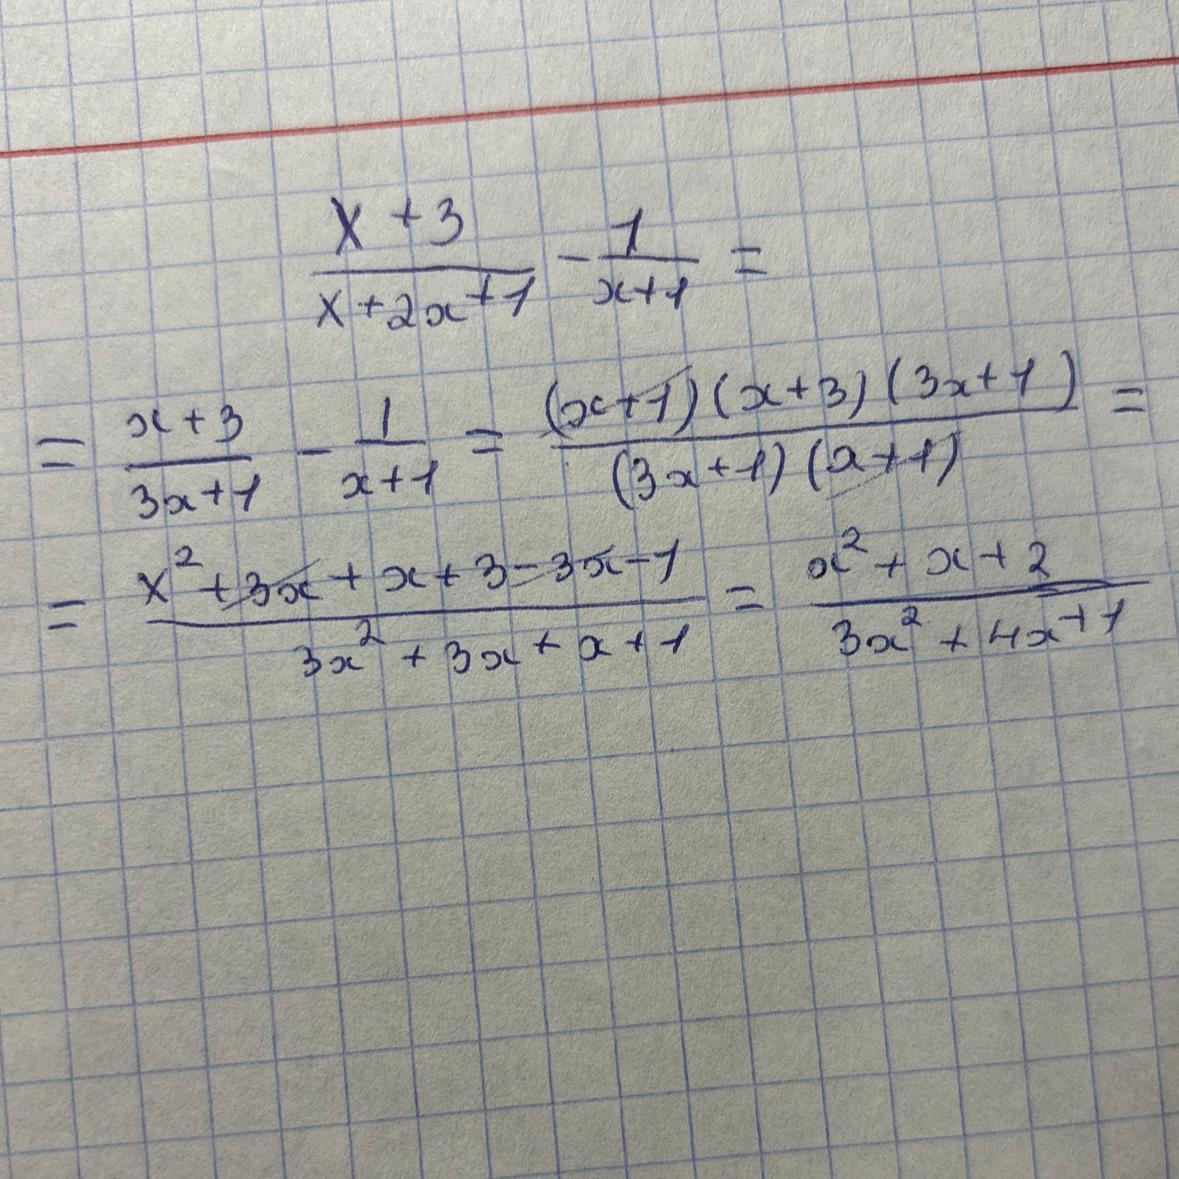 x+3/x+2x+1 - 1/x+1 =
= x+3/3x+1 - 1/x+1 = (x+1)(x+3)(3x+1)/(3x+1)(x+1) =
= x²+3x+x+3-3x-1/3x²+3x+x+1 = x²+x+2/3x²+4x+1